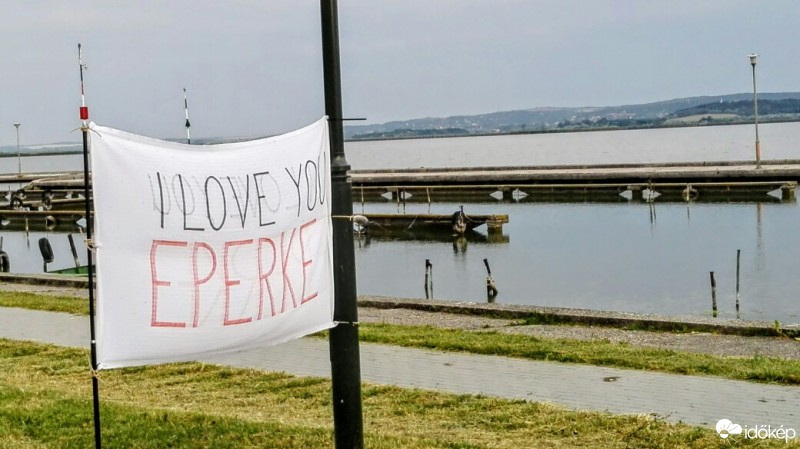 I LOVE YOU
EPERKE
időkép